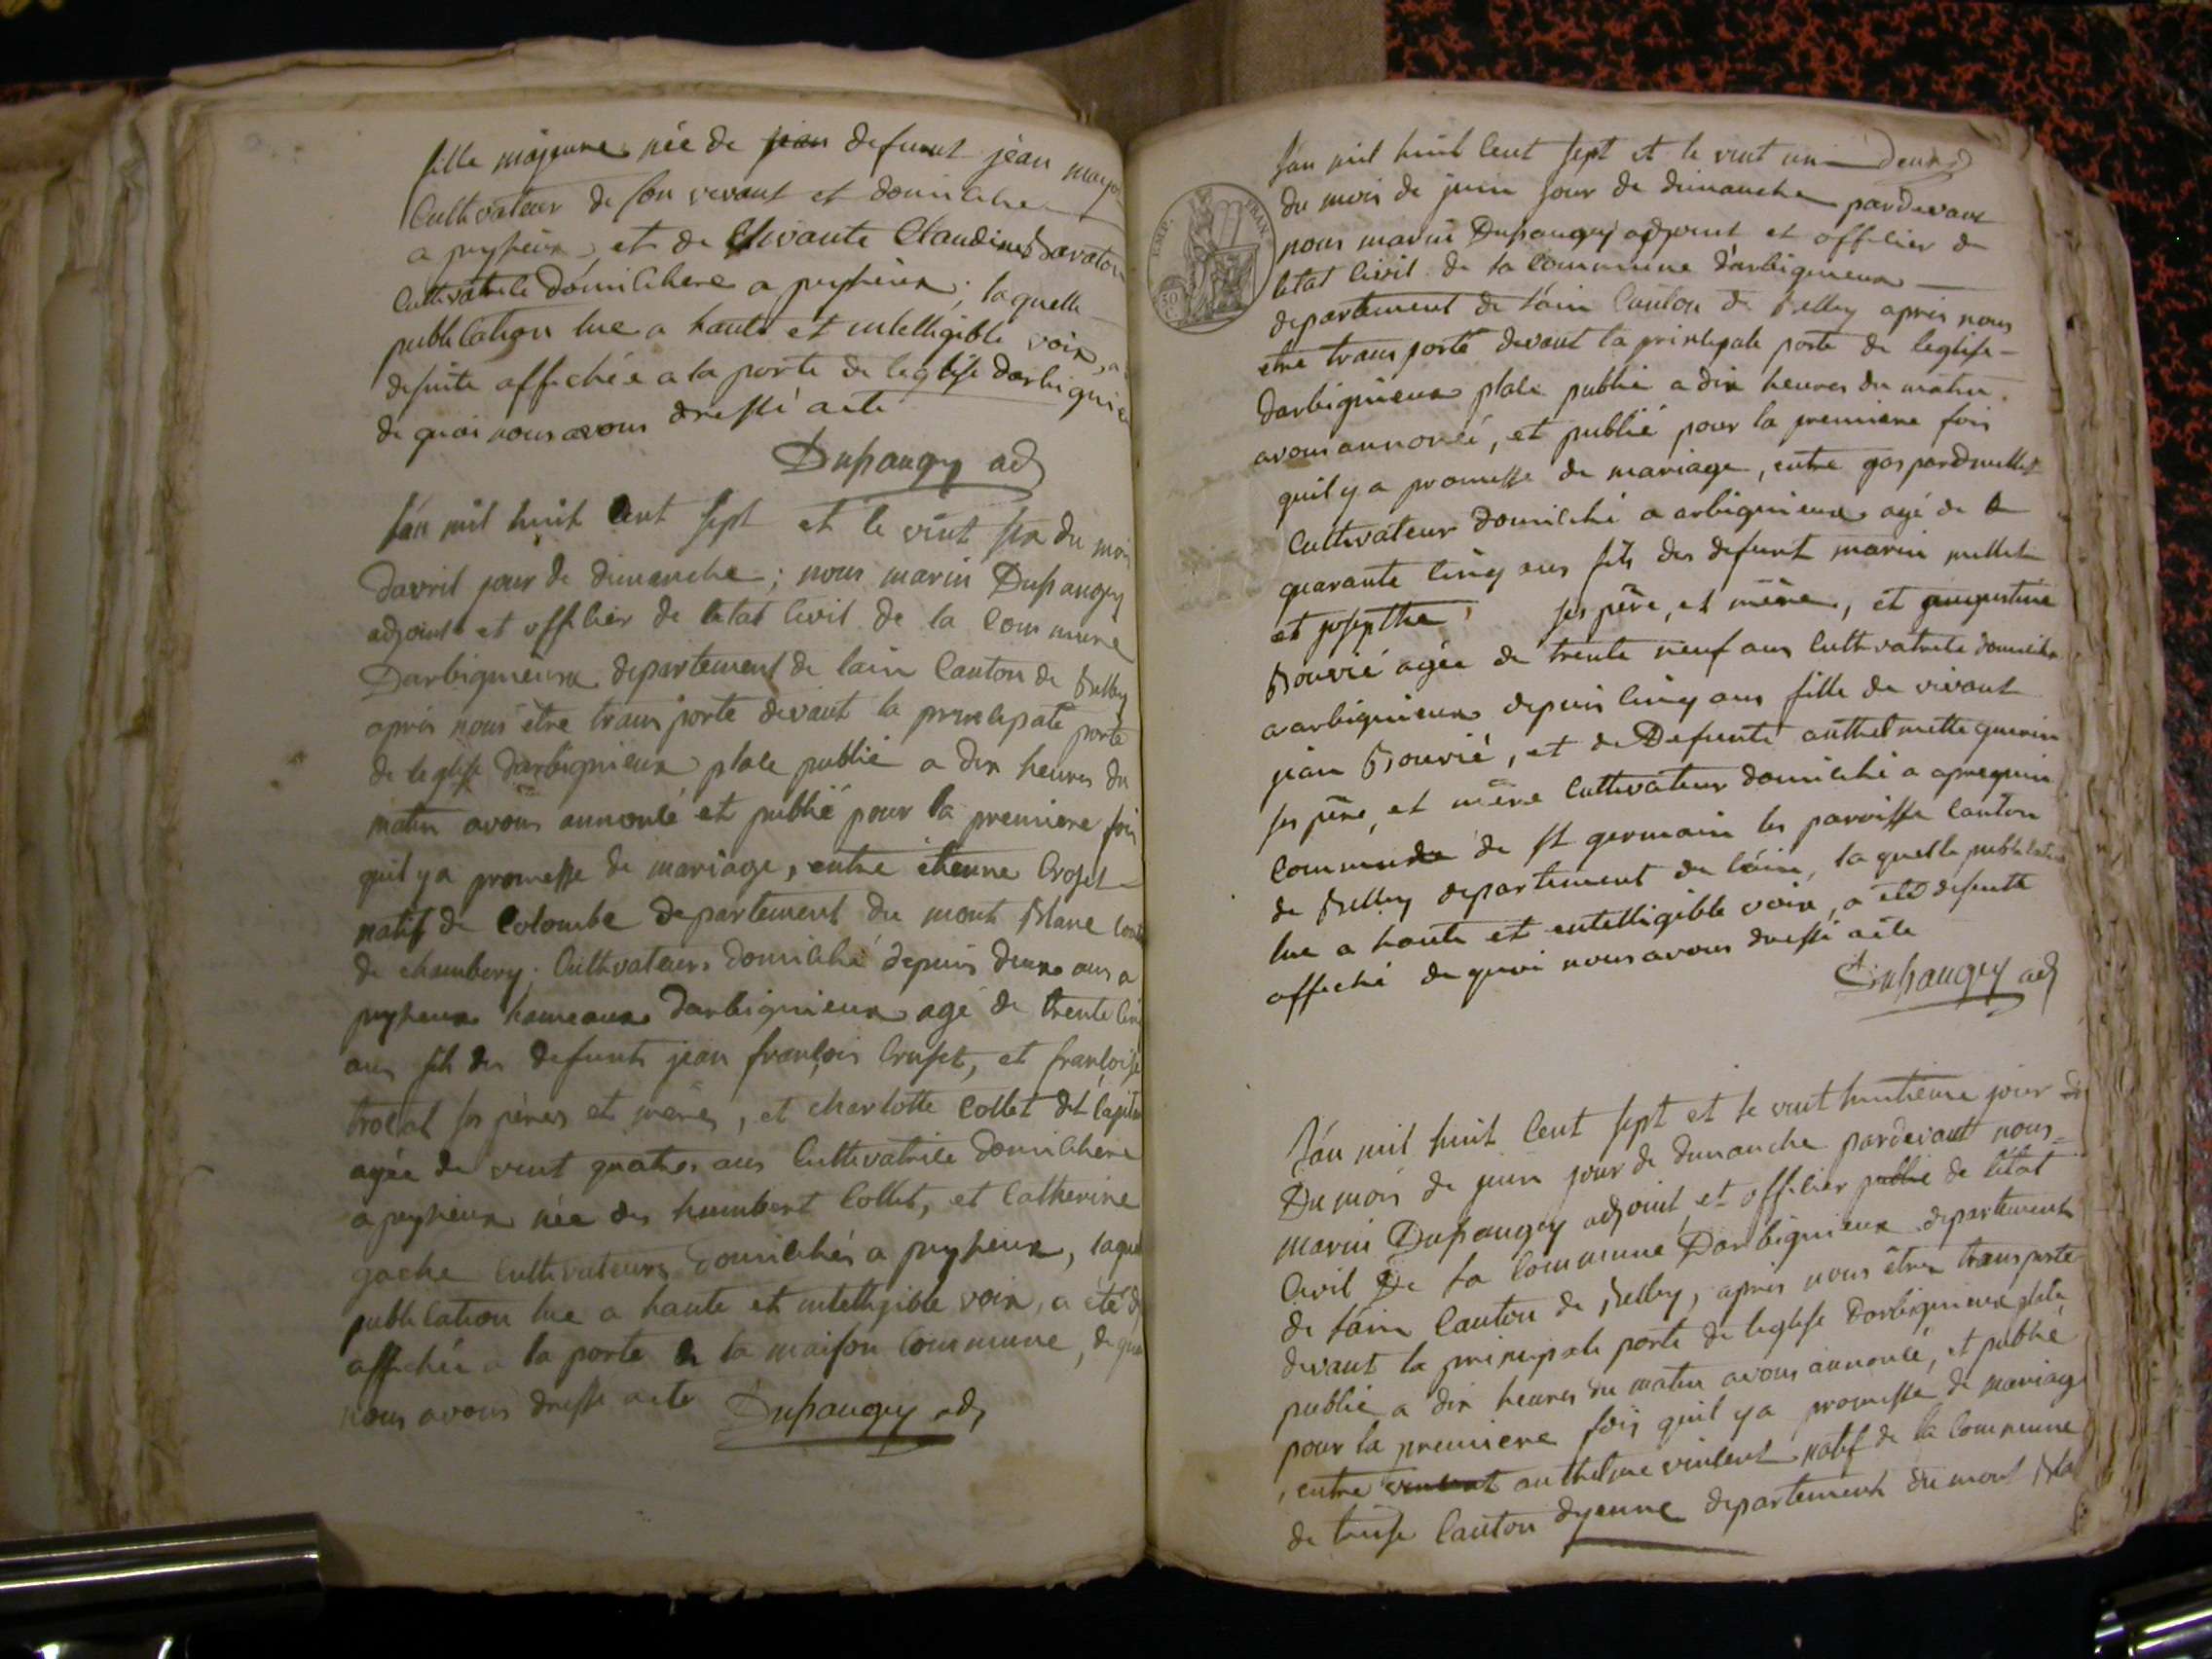 fille majeure née de jean defunt jean
Cultivateur de son vivant et domicilie
a peyzieux, et de vivante Claudine Bavaton
Cultivatrice domiciliere a peyzieux, la quelle
publication lue a haute et intelligible voix, a
desuite affichée a la porte de leglise darbignie
de quoi nous avons dressé acte
Dupaugey adj
l'an mil huit Cent sept et le vint six du mois
davril jour de dimanche; nous marin Dupaugey
adjoint et officier de letat Civil de la Commune
Darbignieux departement de lain Canton de Belley
après nous être transporté devant la principale porte
de leglise darbignieux place publié a dix heures du
matin avons annoncé et publié pour la premiere fois
quil y a promesse de mariage, entre étienne Croset
natif de Colombe departement du mont Blanc
de chambery, Cultivateur domicilié depuis deux ans a
peyzieux hameaux darbignieux agé de trente cin
ans fils des defunts jean françois Cruset, et françoise
trolat ses pères et mères, et charlotte Collet dit
agée de vint quatre ans Cultivatrice domiciliere
a peyzieux née des humbert Collet, et Catherine
gache Cultivateurs domiciliés a peyzieux, laque
publication lue a haute et intelligible voix, a été
affichée a la porte de la maison Commune, de quoi
nous avons dressé acte Dupaugey adj
l'an mil huit Cent sept et le vint un deux
du mois de juin jour de dimanche pardevant
nous marin Dupaugey adjoint et officier de
letat Civil de la Commune d'arbignieux
EMP. FRAN.
50 C.
departement de l'ain Canton de Belley après nous
etre transporté devant la principale porte de leglise
darbignieux place publié a dix heures du matin
avons annoncé, et publié pour la premiere fois
quil y a promesse de mariage, entre gaspard millet
Cultivateur domicilié a arbignieux agé de
quarante cinq ans fils des defunt marin millet
et josepthe ses père, et mère, et augustine
Bouvié agée de trente neuf ans Cultivatrice domicilie
a arbignieux depuis cinq ans fille de vivant
jean Bouvié, et de Defunte anthelmette guerin
ses père, et mère Cultivateur domicilié a
Commune de st germain les paroisse Canton
de Belley departement de l'ain, la quelle publication
lue a haute et entelligible voix, a été desuitte
affiché de quoi nous avons dressé acte
Dupaugey adj
l'an mil huit Cent sept et le vint huitieme jour
Du mois de juin jour de dimanche pardevant nous
marin Dupaugey adjoint, et officier public de l'état
Civil De la Commune Darbignieux departement
de lain Canton de Belley, après nous être transporté
devant la principale porte de leglise darbignieux place
publié a dix heures du matin avons annoncé, et publié
pour la premiere fois quil y a promesse de mariage
, entre vincent anthelme vincent natif de la Commune
de Canton dyenne departement du mont Bla